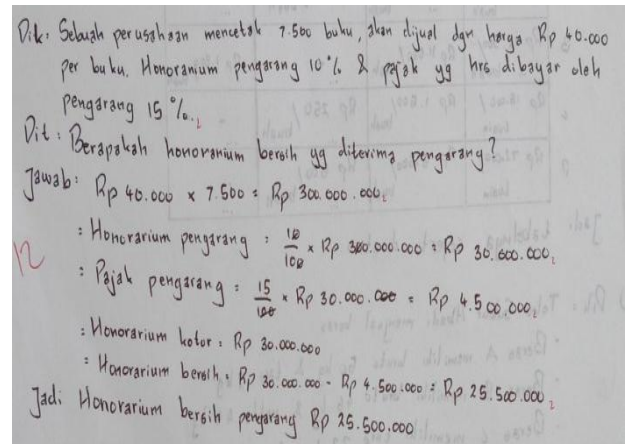 Dik: Sebuah perusahaan mencetak 7.500 buku, akan dijual dgn harga Rp 40.000
per buku. Honoranium pengarang 10% & pajak yg hrs dibayar oleh
pengarang 15%.
Dit: Berapakah honoranium bersih yg diterima pengarang?
Jawab: Rp 40.000 x 7.500 = Rp 300.000.000
: Honorarium pengarang : 10/100 x Rp 300.000.000 = Rp 30.000.000
12
: Pajak pengarang = 15/100 x Rp 30.000.000 = Rp 4.500.000
: Honorarium kotor : Rp 30.000.000
: Honorarium bersih : Rp 30.000.000 - Rp 4.500.000 = Rp 25.500.000
Jadi Honorarium bersih pengarang Rp 25.500.000